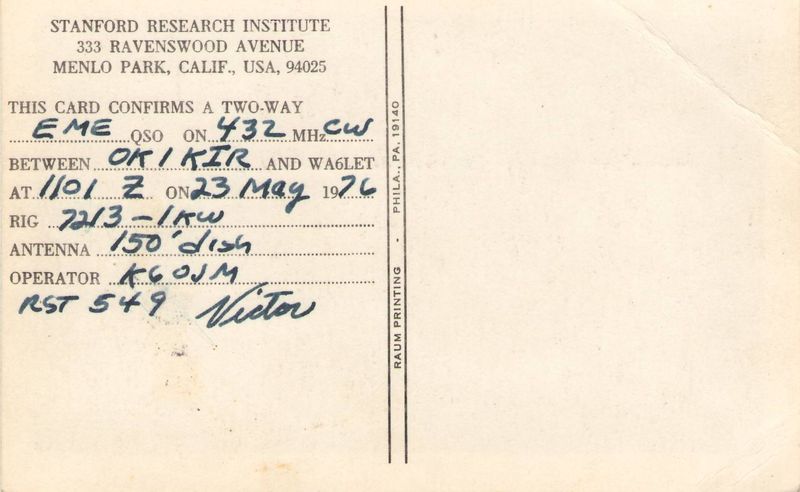 STANFORD RESEARCH INSTITUTE
333 RAVENSWOOD AVENUE
MENLO PARK, CALIF., USA, 94025
THIS CARD CONFIRMS A TWO-WAY
EME QSO ON 432 MHz CW
BETWEEN OK1KIR AND WA6LET
AT 1101 Z ON 23 May 1976
RIG 7213-1KW
ANTENNA 150' dish
OPERATOR K6OJM
RST 549 Victor
RAUM PRINTING - PHILA., PA, 19140